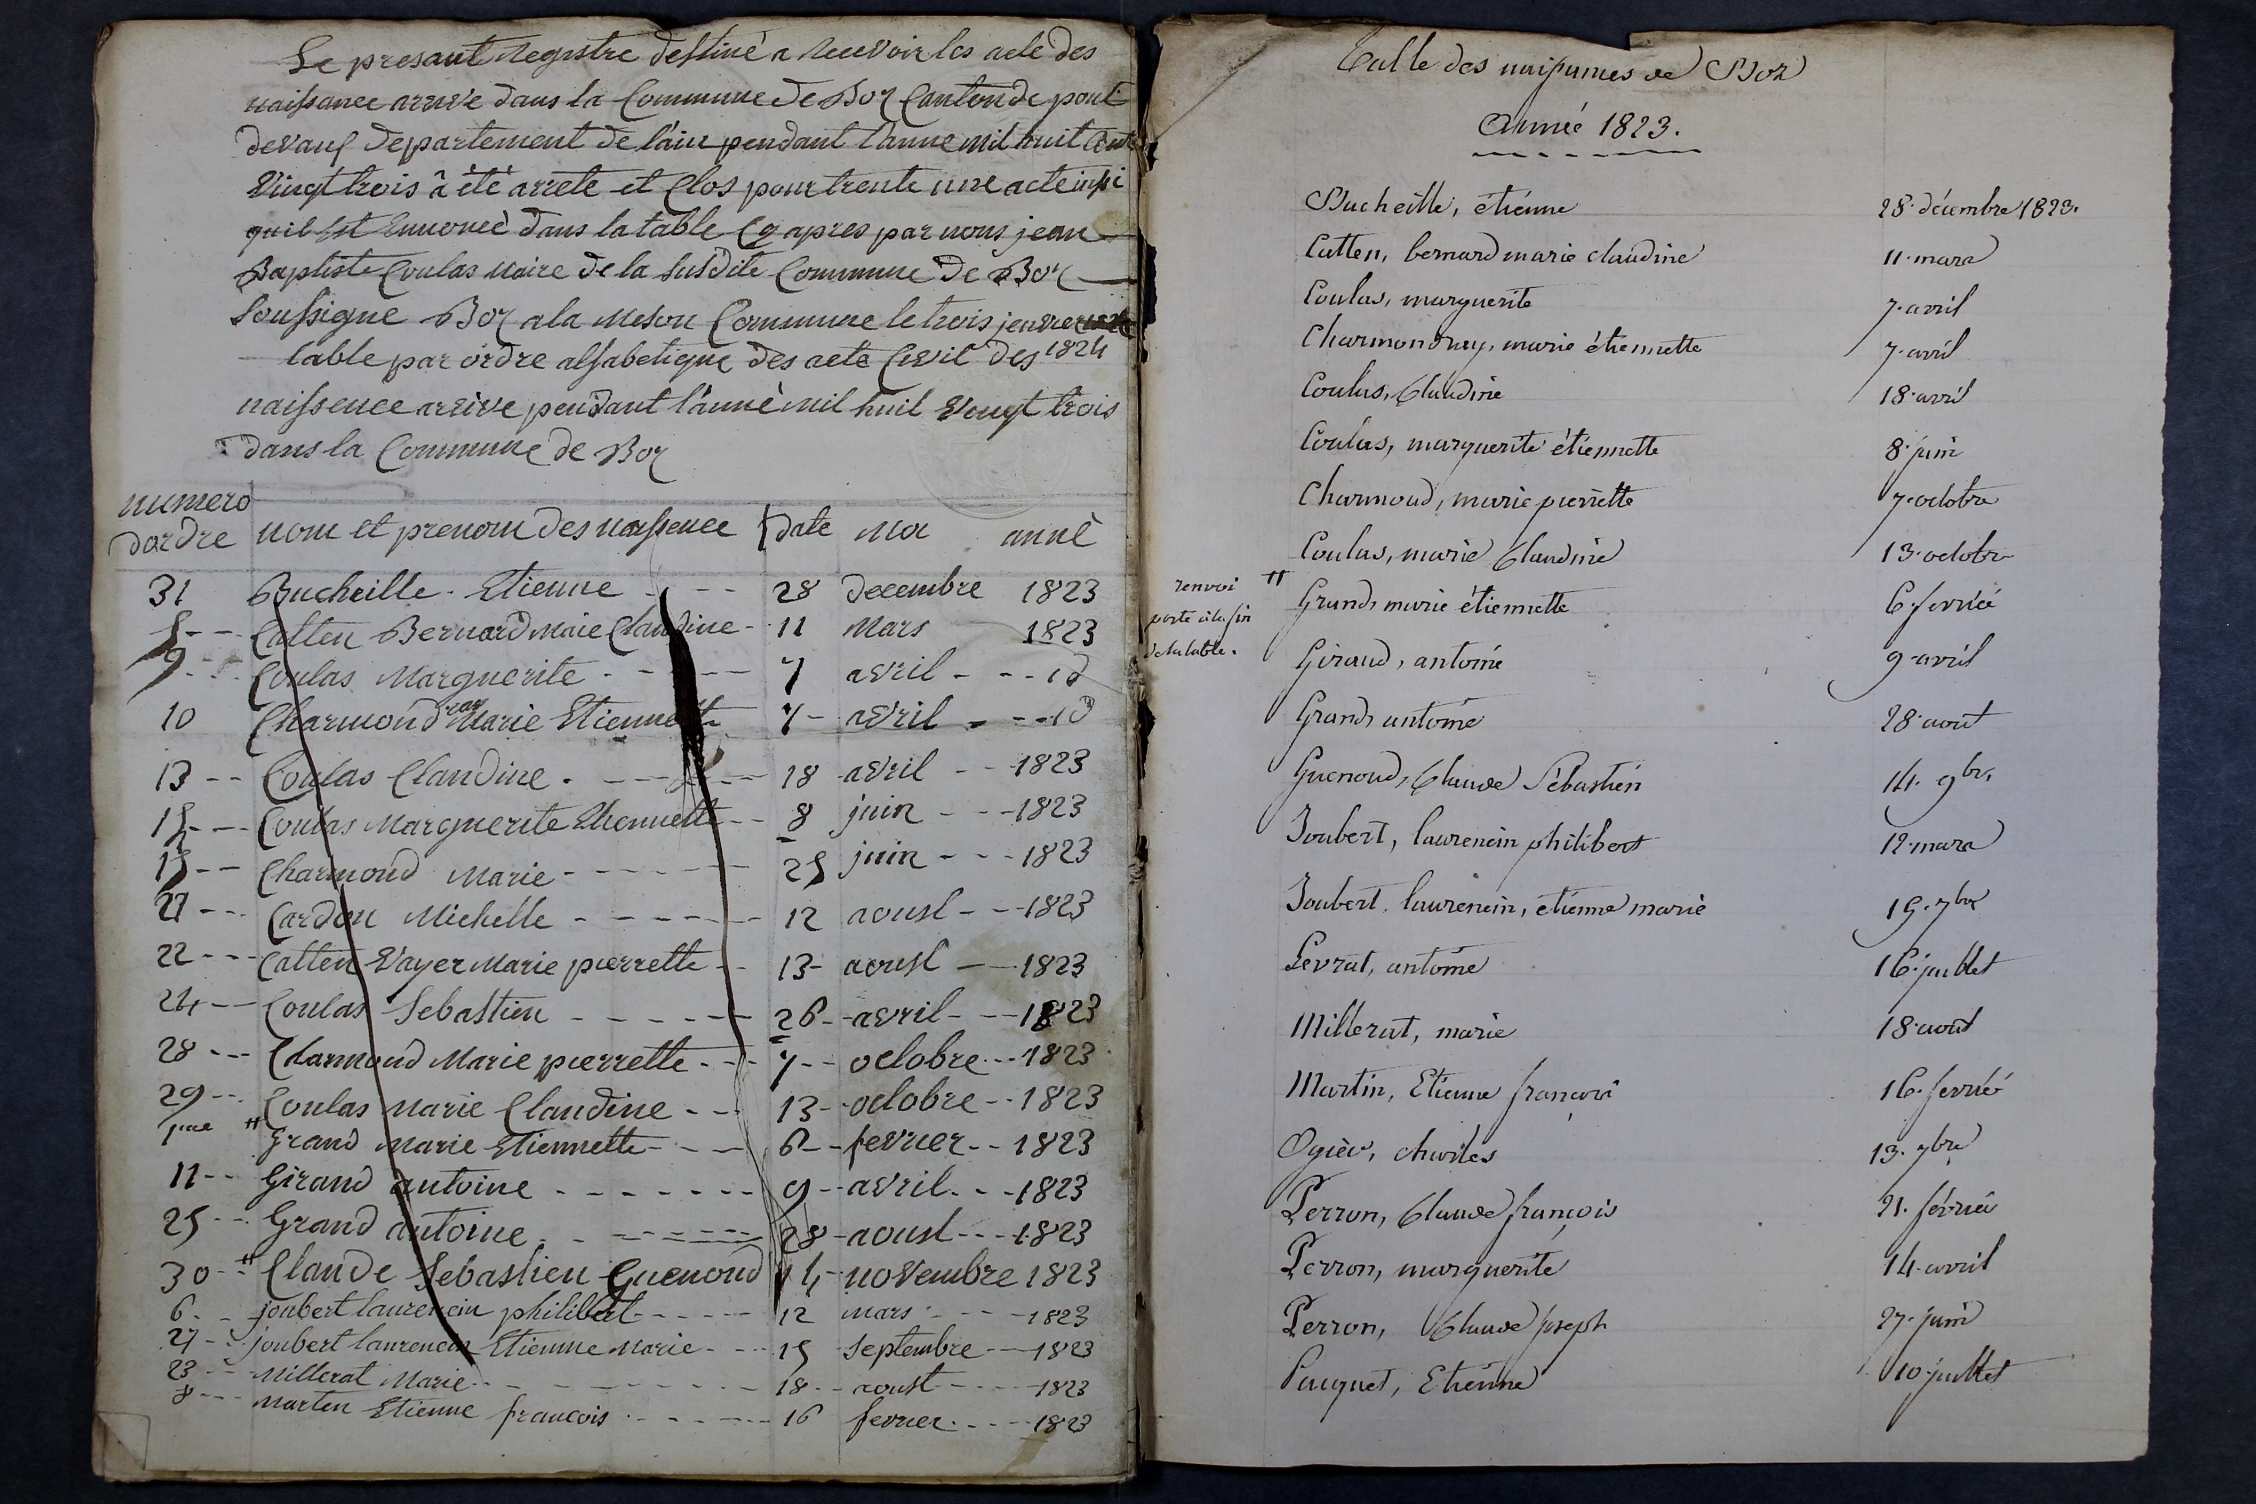 Le presant Registre destiné a recevoir les acte des
naissance arrive dans la Commune de Boz Canton de pont
devaux departement de l'ain pendant l'anne mil huit Cent
vingt trois à été arrete et Clos pour trente une acte insi
quil est Ennoncé dans la table Cy apres par nous jean
Baptiste Coulas Maire de la susdite Commune de Boz
soussigne Boz a la Meson Commune le trois jenvier
1824
table par ordre alfabetique des acte Civil des
naissence arrive pendant l'annè mil huil vengt trois
dans la Commune de Boz
numero dordre nom et prenom des naissence date moi annè
31 Bucheille Etienne 28 decembre 1823
5 Catten Bernard Maie Claudine 11 Mars 1823
9 Coulas Marguerite 7 avril id
10 Charmondray Marie Etiennette 7 avril id
13 Coulas Claudine 18 avril 1823
15 Coulas Marguerite Etiennette 8 juin 1823
Charmond Marie 25 juin 1823
21 Cardon Michelle 12 aoust 1823
22 Catten Vayer Marie pierrette 13 aoust 1823
24 Coulas Sebastien 26 avril 1823
28 Charmond Marie pierrette 7 octobre 1823
29 Coulas Marie Claudine 13 octobre 1823
" Grand Marie Etiennette 6 fevrier 1823
11 Giraud antoine 9 avril 1823
25 Grand antoine 28 aoust 1823
30 " Claude Sebastien Guenoud 14 novembre 1823
6 joubert laurencin philibert 12 mars 1823
27 joubert laurencin Etienne Marie 15 septembre 1823
23 Millerat Marie 18 aoust 1823
8 Marten Etienne francois 16 fevrier 1823
Table des naissances de Boz
Année 1823.
Bucheille, étienne 28 décembre 1823.
Catten, bernard marie claudine 11 mars
Coulas, marguerite 7 avril
Charmondray, marie étiennette 7 avril
Coulas, Claudine 18 avril
Coulas, marguerite étiennette 8 juin
Charmoud, marie pierrette 7 octobre
Coulas, marie Claudine 13 octobre
renvoi
porté à la fin
de la table.
" Grand, marie étiennette 6 fevrier
Giraud, antoine 9 avril
Grand, antoine 28 aout
Guenoud, Claude Sébastien 14 9bre
Joubert, laurencin philibert 12 mars
Joubert laurencin, etienne marie 15 7bre
Levrat, antoine 16 juillet
Millerat, marie 18 aout
Martin, Etienne françois 16 fevrier
Ogier, charles 13 7bre
Perron, Claude françois 21 février
Perron, marguerite 14 avril
Perron, Claude joseph 27 juin
Pauquet, Etienne 10 juillet